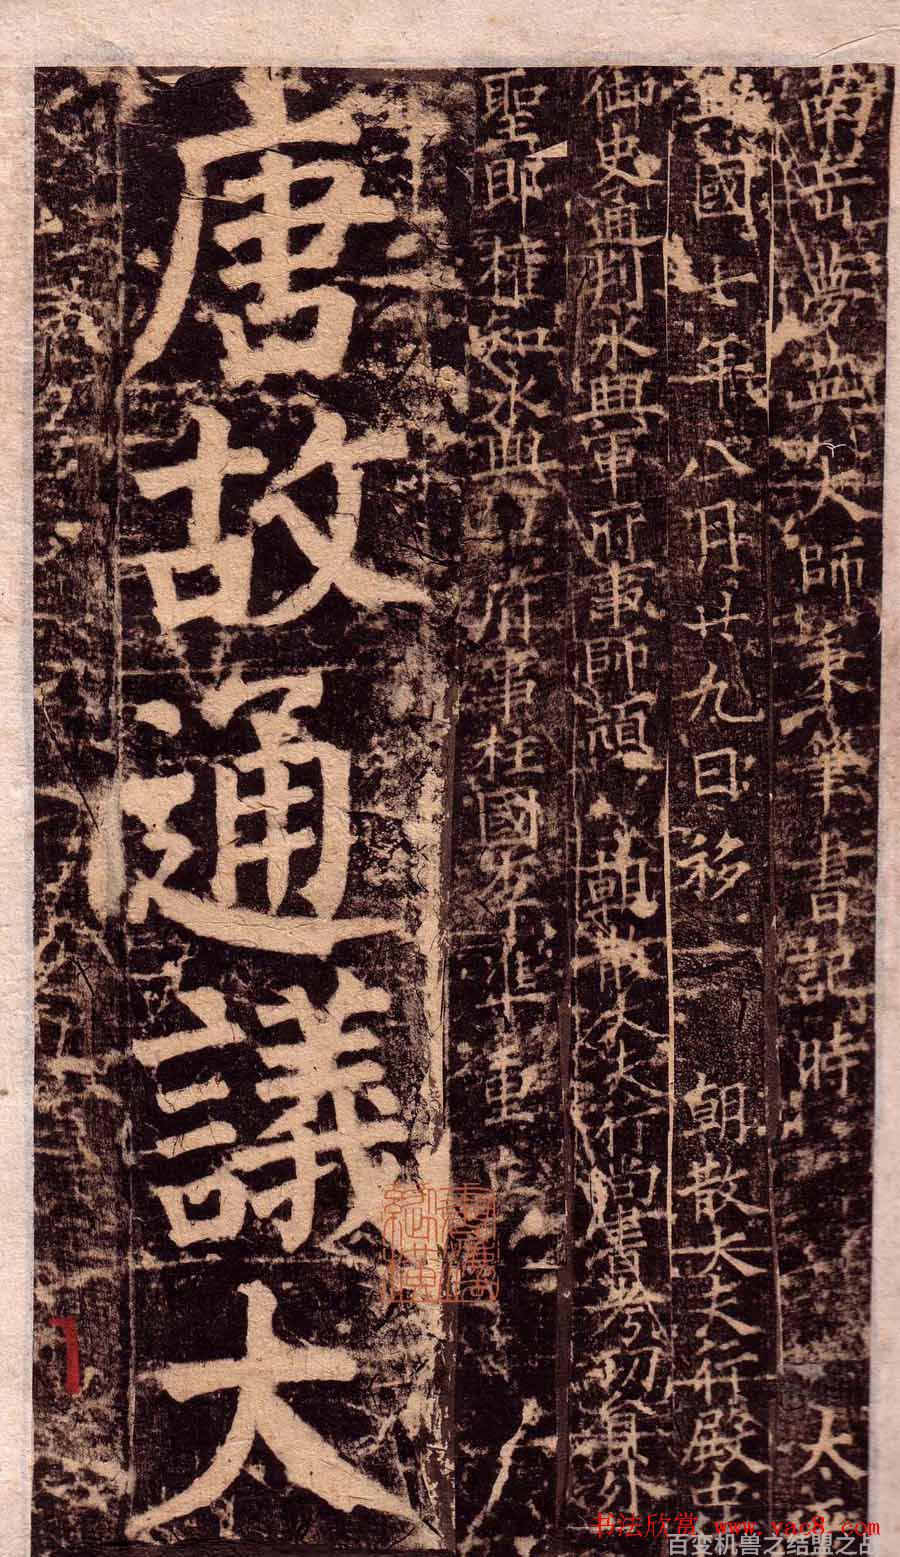 南岳夢英大師秉筆書記時 太平
興國七年八月廿九日移 朝散大夫行殿中
御史通判永興軍府事師頏 朝散大夫行尚書考功員外
郎權知永興軍府事柱國 重
唐故通議大
书法欣赏 www.yac8.com
百变机兽之结盟之战